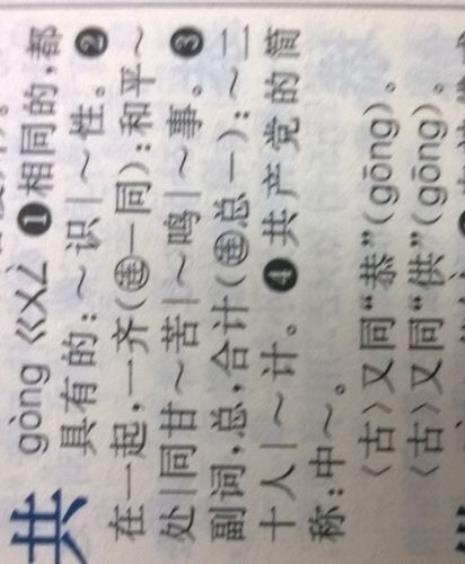 共 gòng ㄍㄨㄥˋ ❶相同的,都
具有的:～识|～性。❷
在一起,一齐(㊣一同):和平～
处|同甘～苦|～鸣|～事。❸
副词,总,合计(㊣总一):～二
十人|～计。❹共产党的简
称:中～。
〈古〉又同“恭”(gōng)。
〈古〉又同“供”(gōng)。